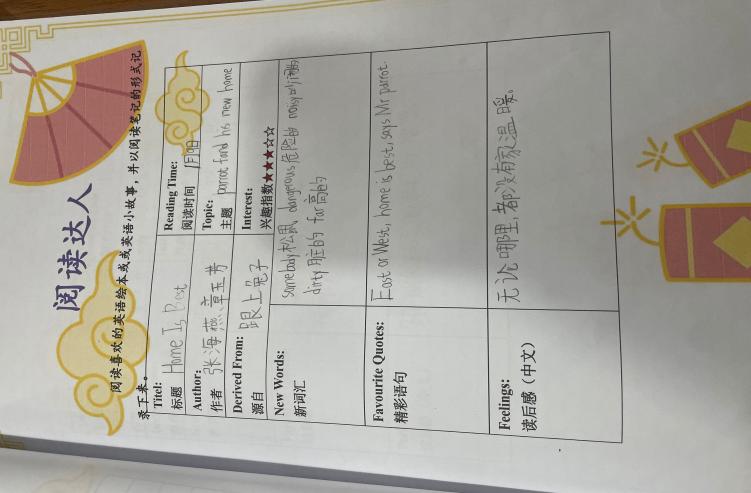 阅读达人
阅读喜欢的英语绘本或英语小故事，并以阅读笔记的形式记
录下来。
Titel:
标题
Home Is Best
Reading Time:
阅读时间
1月9日
Author:
作者
张海燕、章玉芳
Topic:
主题
parrot fand his new home
Derived From:
源自
跟上兔子
Interest:
兴趣指数★★★☆☆
New Words:
新词汇
somebody松鼠 dangerous 危险的 noisy吵闹的
dirty 脏的 far 高的
Favourite Quotes:
精彩语句
East or West, home is best, says Mr parrot.
Feelings:
读后感（中文）
无论哪里，都没有家温暖。